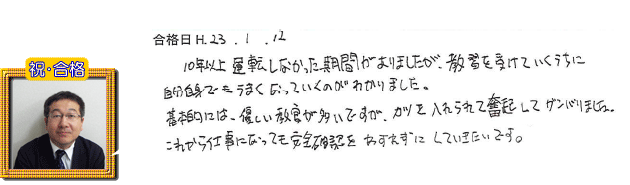 合格日 H.23.1.12
祝・合格
10年以上運転しなかった期間がありましたが、教習を受けていくうちに
自分自身でもうまくなっていくのがわかりました。
基本的には、優しい教官が多いですが、カツを入れられて奮起してガンバリました。
これから仕事になっても安全確認をわすれずにしていきたいです。